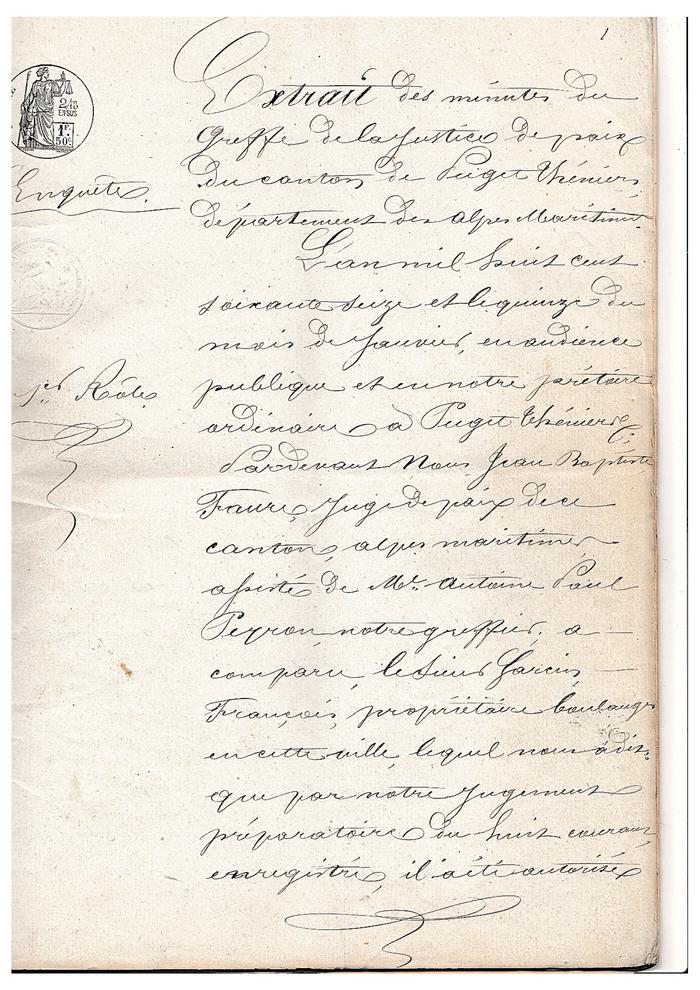 1
2/10
EN SUS
1F.
50c
Extrait des minutes du
Greffe de la Justice de paix
du canton de Puget Théniers,
département des Alpes Maritimes
Enquête.
L'an mil huit cent
soixante seize et le quinze du
mois de Janvier, en audience
1er Rôle
publique et en notre prétoire
ordinaire à Puget Théniers
Pardevant Nous Jean Baptiste
Faure, Juge de paix de ce
canton, alpes maritimes,
assisté de Mr. Antoine Paul
Peyron, notre greffier, a
comparu, le Sieur Garcin,
François, propriétaire boulanger
en cette ville, lequel nous a dit,
que par notre Jugement
préparatoire du huit courant,
enregistré, il a été autorisé